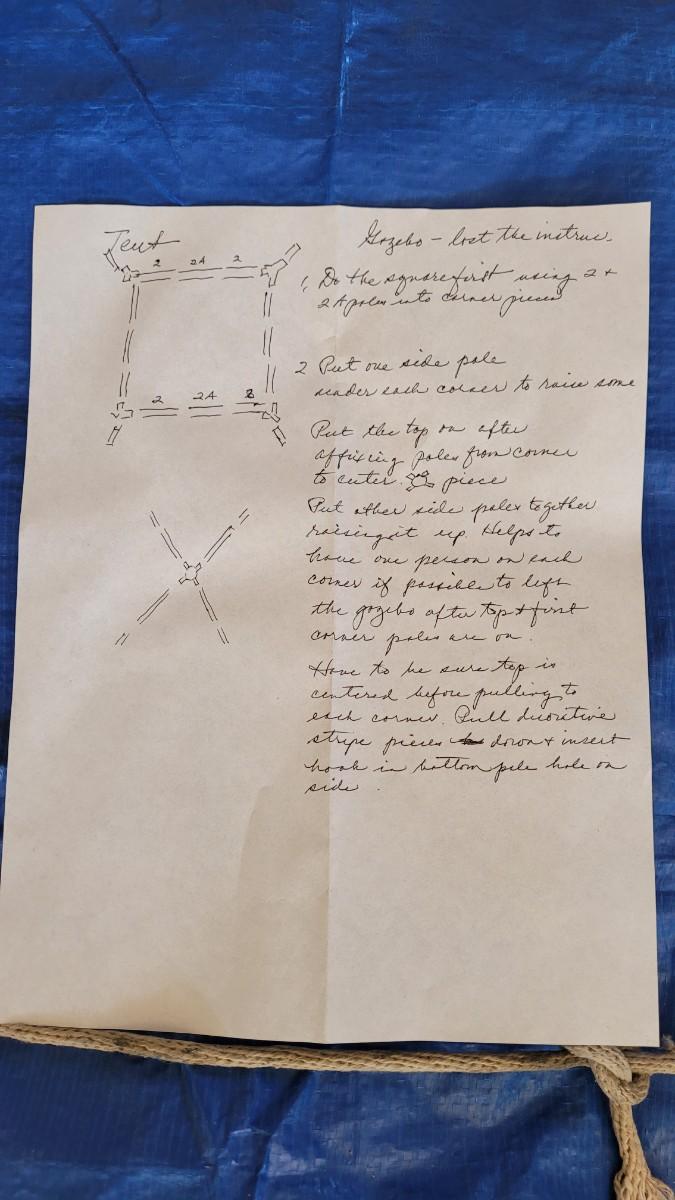 Tent
2 2A 2
2 2A 2
Gozebo - lost the instruc.
1. Do the square first using 2 +
2A poles into corner pieces
2 Put one side pole
under each corner to raise some
Put the top on after
affixing poles from corner
to center piece
Put other side poles together
raising it up. Helps to
have one person on each
corner if possible to left
the gozebo after top + first
corner poles are on.
Have to be sure top is
centered before pulling to
each corner. Pull decorative
stripe pieces down + insert
hook in bottom pole hole on
side.